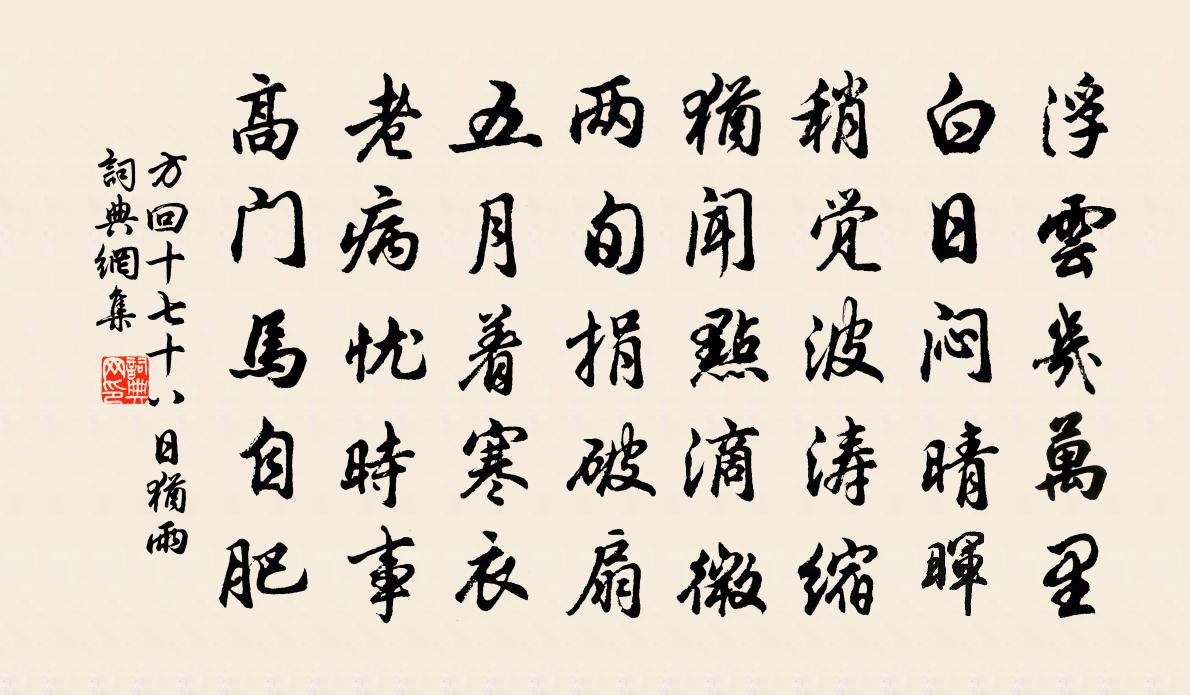 浮雲幾萬里
白日闷晴暉
稍觉波涛缩
猶闻點滴微
两旬捐破扇
五月着寒衣
老病忧時事
高门馬自肥
方回十七十八日猶雨
詞典網集
詞典网印